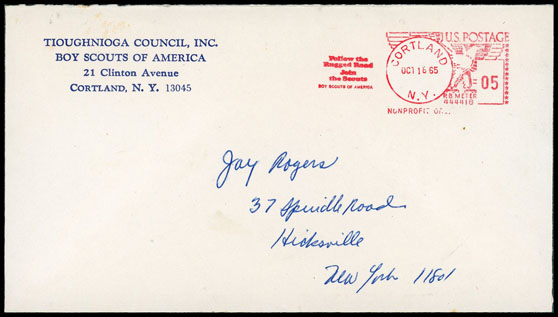 TIOUGHNIOGA COUNCIL, INC.
BOY SCOUTS OF AMERICA
21 Clinton Avenue
CORTLAND, N. Y. 13045
Follow the
Rugged Road
Join
the Scouts
BOY SCOUTS OF AMERICA
U.S. POSTAGE
CORTLAND
OCT 16 65
N.Y.
05
P.B. METER
444410
NONPROFIT
Jay Rogers
37 Spindle Road
Hicksville
New York 11801